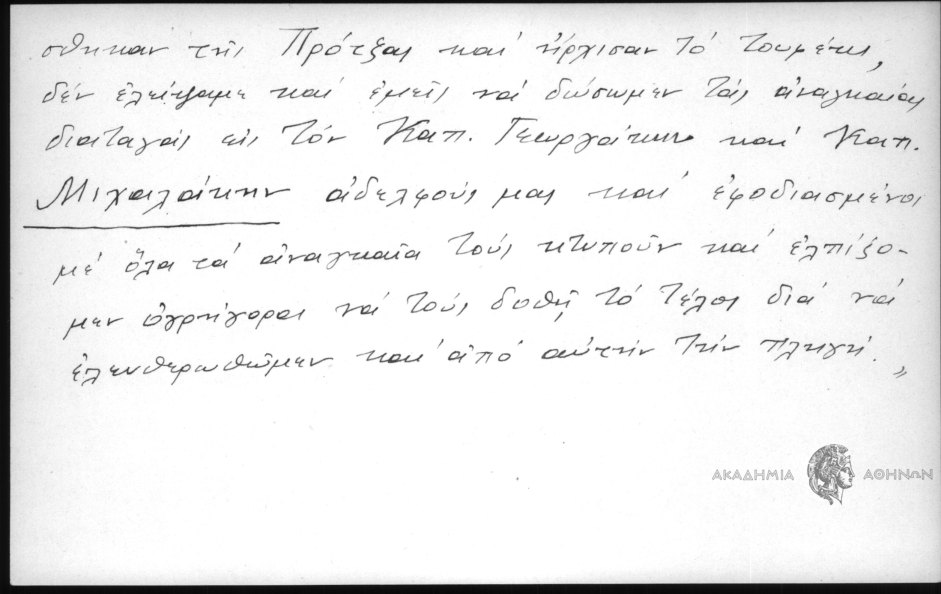 σθηκαν τῆς Πρότζας καί ἤρχισαν τό τουφέκι,
δέν ἐλείψαμε καί ἐμεῖς νά δώσωμεν τάς ἀναγκαίας
διαταγάς εἰς τόν Καπ. Γεωργάκην καί Καπ.
Μιχαλάκην ἀδελφούς μας καί ἐφοδιασμένοι
μέ ὅλα τά ἀναγκαῖα τούς κτυποῦν καί ἐλπίζο-
μεν ὀγρήγορα νά τούς δοθῇ τό τέλος διά νά
ἐλευθερωθῶμεν καί ἀπό αὐτήν τήν πληγή.»
ΑΚΑΔΗΜΙΑ ΑΘΗΝΩΝ